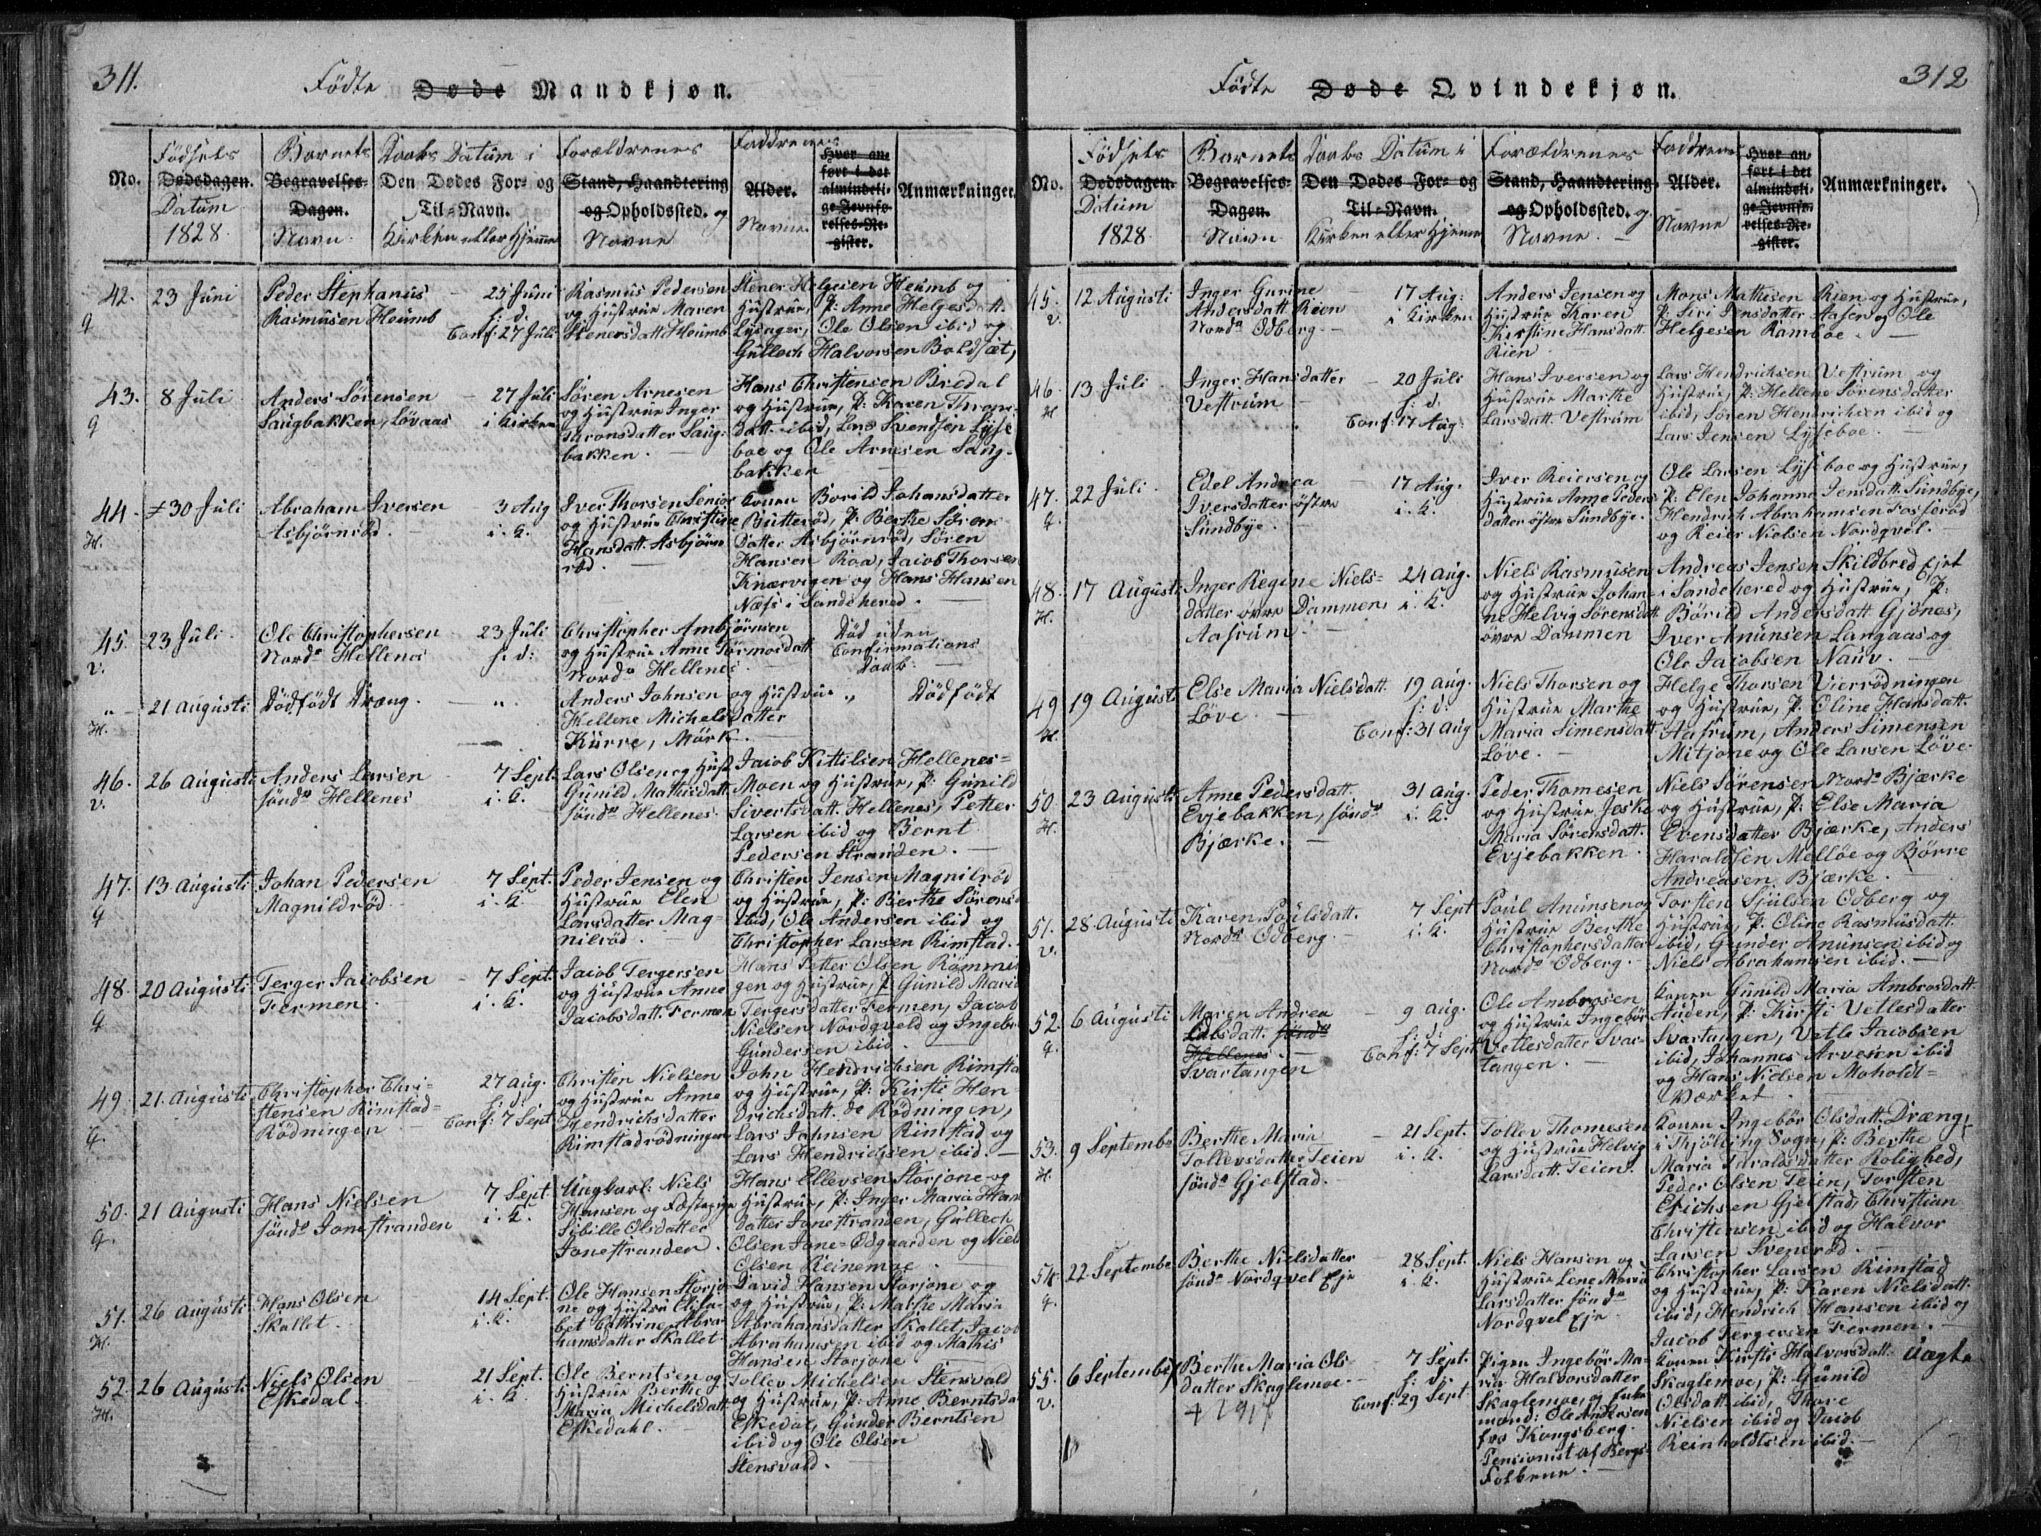 311.
Födte Døde Mandkjøn.
No.
Födsels
Dødsdagen.
Datum
1828.
Barnets
Begravelses-
Dagen.
Navn
Daabs Datum i
Den Dødes For- og
Til-Navn.
Kirken eller Hjemme
Forældrenes
Stand, Haandtering
og Opholdssted. og
Navne
Faddrenes
Alder.
Navne
Hvor an-
ført i det
almindeli-
ge Jevnfø-
relses-Re-
gister.
Anmærkninger.
42.
q
23 Juni
Peder Stephanus
Rasmusen Houmb
25 Juni
h: d:
Conf: 27 Juli
Rasmus Pedersen
og Hustrue Maren
Stenersdatt. Houmb
Stener Helgesen Houmb og
Hustrue, P: Anne Helgesdatt.
Lysager, Ole Olsen ibid og
Gulloch Halvorsen Boldsæt,
43.
q
8 Juli
Anders Sörensen
Saugbakken, Lövaas
27 Juli
i Kirken
Sören Arnesen
og Hustrue Inger
Thronsdatter Saug-
bakken.
Hans Christensen Bredal
og Hustrue, P: Karen Throns-
datt. ibid, Lars Svendsen Lyse
boe og Ole Arnesen Saug-
bakken
44.
H.
30 Juli
Abraham Iversen
Asbjörnröd.
3 Aug
i. K.
Iver Thorsen Senior
og Hustrue Christine
Hansdatt. Asbjörn
röd.
Konen Borild Johansdatter
Butteröd, P: Berthe Sörens-
datter Asbjörnröd, Sören
Hansen Roa, Jacob Thorsen
Knærvigen og Hans Hansen
Næss i Sandehered.
45.
v.
23 Juli
Ole Christophersen
Nordre Hellenes
23 Juli
h: d:
Christopher Ambjörnsen
og Hustrue Anne Tormosdatt
Nordre Hellenes
Död uden
Confirmations
Daab.
"
H.
21 Augusti
Dödfödt Dræng.
"
Anders Johnsen og Hustrue
Hellene Michelsdatter
Kürre, Mörk.
"
Dödfödt
46.
v.
26 Augusti
Anders Larsen
söndre Hellenes
7 Sept.
i. K.
Lars Olsen og Hust
Gunild Mathisdatt.
söndre Hellenes
Jacob Kittilsen Hellenes-
Moen og Hustrue, P: Gunild
Sivertsdatt. Hellenes, Petter
Larsen ibid og Bernt
Pedersen Stranden.
47.
q
13 Augusti
Johan Pedersen
Magnildröd
7 Sept.
i. K.
Peder Jensen og
Hustrue Elen
Larsdatter Mag-
nilröd.
Christen Jensen Magnilröd
og Hustrue, P: Berthe Sörens
ibid, Ole Andersen ibid og
Christopher Larsen Rimstad.
48.
q
20 Augusti
Terger Jacobsen
Fermen.
7 Sept.
i. K.
Jacob Tergersen
og Hustrue Anne
Jacobsdatt. Fermen
Hans Petter Olsen Römmin
gen og Hustrue, P: Gunild Maria
Tergersdatter Fermen, Jacob
Nielsen Nordqveld og Ingebr.
Gundersen ibid.
49.
q.
21. Augusti
Christopher Chri-
stensen Rimstad-
Rödningen
27 Aug.
h: d:
Conf: 7 Sept
Christen Nielsen
og Hustrue Anne
Hendrichsdatter
Rimstadrödningen
John Hendrichsen Rimsta
og Hustrue, P: Kirsti Hen-
drichsdatt. de Rödningen,
Lars Johnsen Rimstad og
Lars Hendrichsen ibid.
50.
q.
21 Augusti
Hans Nielsen
söndre Jonestranden
7 Sept
i. K.
Ungkarl: Niels
Hansen og Fæstepige
Sibille Olsdatter
Jonestranden.
Hans Ellevsen Storjone og
Hustrue, P: Inger Maria Hans
datter Jonestranden, Gulloch
Olsen Jone-Ödgaarden og Niels
Olsen Reinemoe.
51.
H.
26 Augusti
Hans Olsen
Skallet.
14 Sept.
i. K.
Ole Hansen Storjo
ne og Hustru Elisa-
bet Cathrine Abra-
hamsdatter Skallet
David Hansen Storjone og
og Hustrue, P: Marthe Maria
Abrahamsdatter Skallet, Jacob
Abrahamsen ibid og Mathis
Hansen Storjone
52.
H.
26 Augusti
Niels Olsen
Eskedal.
21 Sept.
i. K.
Ole Berntsen og
Hustrue Berthe
Maria Michelsdatt
Eskedahl.
Tollev Michelsen Stensvald
og Hustrue, P: Anne Berntsda
Eskedal, Gunder Berntsen
ibid og Ole Olsen
Stensvald.
312
Födte Døde Qvindekjøn.
No.
Födsels
Dødsdagen.
Datum
1828
Barnets
Begravelses-
Dagen.
Navn
Daabs Datum i
Den Dødes For- og
Til-Navn.
Kirken eller Hjemme
Forældrenes
Stand, Haandtering
og Opholdssted. og
Navne.
Faddrenes
Alder.
Navne
Hvor an-
ført i det
almindeli-
ge Jevnfø-
relses-Re-
gister.
Anmærkninger.
45.
v.
12 Augusti
Inger Gurine
Andersdatt. Rien
Nordre Odberg.
17 Aug:
i Kirken
Anders Jensen og
Hustrue Karen
Kirstine Hansdatt.
Rien
Mons Mathisen Rien og Hustrue,
P: Siri Jensdatter Aasen og Ole
Helgesen Ramboe.
46.
H
13 Juli
Inger Hansdatter
Vestrum
20 Juli
h: d:
Conf: 17 Aug:
Hans Iversen og
Hustrue Marthe
Larsdatt. Vestrum
Lars Hendrichsen Vestrum og
Hustrue, P: Hellene Sörensdatter
ibid, Sören Hendrichsen ibid og
Lars Jensen Lyseboe.
47.
q.
22 Juli
Edel Andrea
Iversdatter östre
Sundbye.
17 Aug.
i. K.
Iver Reiersen og
Hustrue Anne Peders
datter östre Sundbye.
Ole Larsen Lyseboe og Hustrue,
P: Elen Johanne Jensdatt. Sundbye,
Hendrich Abrahamsen Fosseröd
og Reier Nielsen Nordqvel.
48.
H.
17 Augusti
Inger Regine Niels-
datter övre Dammen,
Aasrum.
24 Aug.
i. K.
Niels Rasmusen
og Hustrue Johan-
ne Helvig Sörensdatt
övre Dammen
Andreas Jensen Skildbred Ejet
i Sandehered og Hustrue, P:
Börild Andersdatt Gjönes,
Iver Anunsen Langaas og
Ole Jacobsen Nauv.
49
H.
19 Augusti
Else Maria Nielsdatt.
Löve.
19 Aug.
h: d:
Conf: 31 Aug
Niels Thorsen og
Hustrue Marthe
Maria Simensdatt
Löve.
Helge Thorsen Vierrödningen
og Hustrue, P: Oline Hansdatt.
Aasrum, Anders Simensen
Mitjone og Ole Larsen Löve.
50
H.
23 Augusti
Anne Pedersdatt.
Evjebakken, söndre
Bjærke.
31 Aug.
i. K.
Peder Thomesen
og Hustrue Jeske
Maria Sörensdatt.
Evjebakken
Niels Sörensen Nordre Bjærke
og Hustrue, P: Else Maria
Evensdatter Bjærke, Anders
Haraldsen Mellöe og Börre
Andreasen Bjærke.
51.
v.
28 Augusti
Karen Poulsdatt.
Nordre Odberg.
7 Sept
i. K.
Poul Anunsen og
Hustrue Berthe
Christophersdatter
Nordre Odberg.
Torsten Sjulsen Odberg og
Hustrue, P: Oline Rasmusdatt.
ibid, Gunder Anunsen ibid og
Niels Abrahamsen ibid.
52.
q.
6 Augusti
Maren Andrea
Olsdatt. söndre
Hellenes.
Svartangen
9 Aug.
h: d:
Conf: 7 Sept
Ole Ambrosen
og Hustrue Ingebör
Vetlesdatter Svar-
tangen.
Konen Gunild Maria Ambrosdatt.
Auden, P: Kirsti Vetlesdatter
Svartangen, Vetle Jacobsen
ibid, Johannes Arvesen ibid
og Hans Nielsen Moholdt-
Værket.
53.
H.
9 September
Berthe Maria
Tollevsdatter Teien
söndre Gjelstad.
21 Sept.
i. K.
Tollev Thomesen
og Hustrue Helvig
Larsdatt. Teien.
Konen Ingebör Olsdatt. Dræng,
i Thjölling Sogn, P: Berthe
Maria Taraldsdatter Rolighed,
Peder Olsen Teien, Torsten
Erichsen Gjelstad, Christian
Christensen ibid og Halvor
Larsen Sveneröd.
54.
q.
22 September
Berthe Nielsdatter
söndre Nordqvel Eje
28 Sept.
i. K.
Niels Hansen og
Hustrue Lene Maria
Larsdatter söndre
Nordqvel Eje
Christopher Larsen Rimstad
og Hustrue, P: Karen Nielsdatt.
ibid, Hendrich Hansen ibid og
Jacob Tergersen Fermen.
55.
v.
6 September
Berthe Maria Ols
datter Skaglemoe.
+ 1917
7 Sept.
h: d:
Conf: 29 Sept.
Pigen Ingebör Ma-
ria Halvorsdatter
Skaglemoe, og Enke
mand: Ole Andersen
fra Kongsberg.
Pensionist af Bergs-
Folkene.
Konen Kirsti Halvorsdatt.
Skaglemoe, P: Gunild
Olsdatt. ibid, Thore
Nielsen ibid og Jacob
Reinholdtsen ibid.
Uægte